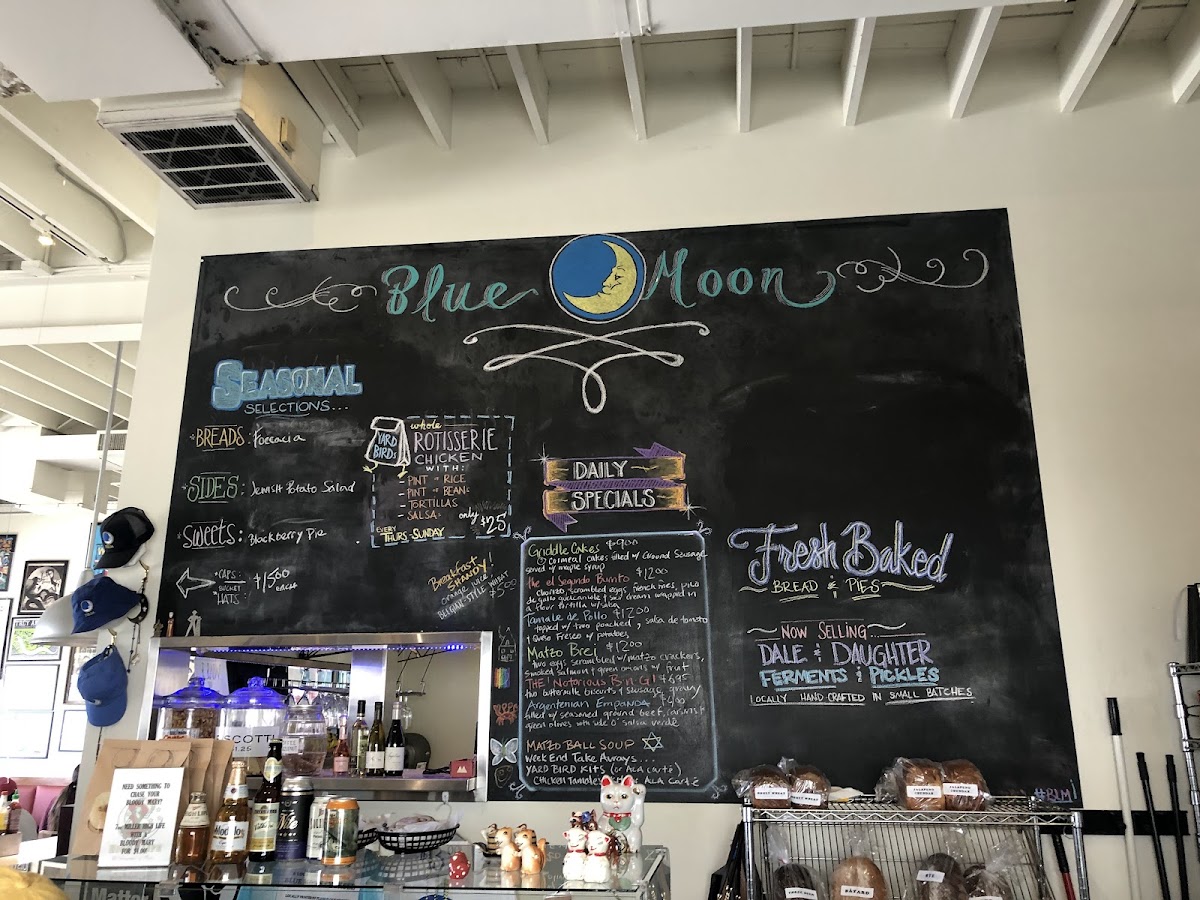 Blue Moon
SEASONAL
SELECTIONS...
*BREADS: Foccacia
*SIDES: Jewish Potato Salad
*Sweets: Blackberry Pie
*CAPS:
BUCKET
HATS:
$15.00
EACH
YARD
BIRDS
whole
ROTISSERIE
CHICKEN
WITH:
- PINT RICE
- PINT BEANS
- TORTILLAS
- SALSA
only $25
EVERY
THURS-SUNDAY
Breakfast
SHANDY!
orange juice
BELGIAN-STYLE WHEAT
$5.00
DAILY
SPECIALS
Griddle Cakes $9.00
cornmeal cakes filled w/ Ground Sausage
served w/ maple syrup
The el Segundo Burrito $12.00
chorizo, scrambled eggs, french fries, pico
de gallo, guacamole & sour cream wrapped in
a flour tortilla w/
Tamale de Pollo $12.00
topped w/ two poached, salsa de tomato
& Queso Fresco w/ potatoes
Matzo Brei $12.00
two eggs scrambled w/ matzo crackers,
smoked salmon & green onions w/ fruit
THE! Notorious B-n-G! $6.95
two buttermilk biscuits & sausage gravy
Argentenian Empanda
filled w/ seasoned ground beef, raisins &
green olives with side o' salsa verde
MATZO BALL SOUP
Week End Take Aways...
YARD BIRD KITS (or A La Carté)
CHICKEN Tamales A La Carté
Fresh Baked
BREAD & PIES
NOW SELLING...
DALE & DAUGHTER
FERMENTS & PICKLES
LOCALLY HAND CRAFTED IN SMALL BATCHES
#BLM
NEED SOMETHING TO
CHASE YOUR
BLOODY MARY?
7oz MILLER HIGH LIFE
WITH A
BLOODY MARY
FOR $1.00!
SCOTTI
1.25
Modelo
JALAPENO
CHEDDAR
JALAPENO
CHEDDAR
BATARD
RYE